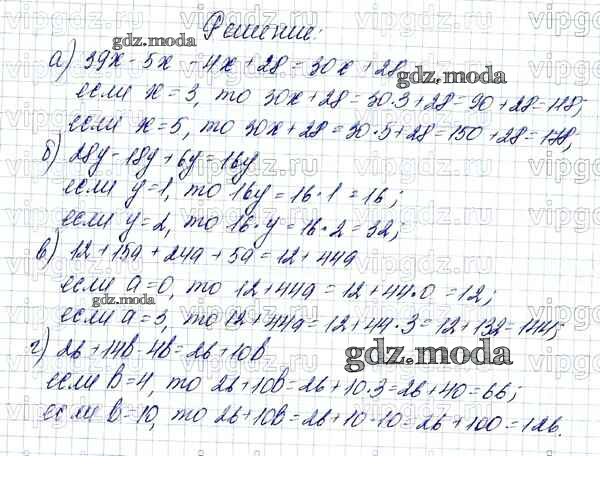 Решение:
а) 39x - 5x - 4x + 28 = 30x + 28
если x = 3, то 30x + 28 = 30·3 + 28 = 90 + 28 = 118;
если x = 5, то 30x + 28 = 30·5 + 28 = 150 + 28 = 178;
б) 28y - 18y + 6y = 16y
если y = 1, то 16y = 16·1 = 16;
если y = 2, то 16·y = 16·2 = 32;
в) 12 + 15a + 24a + 5a = 12 + 44a
если a = 0, то 12 + 44a = 12 + 44·0 = 12;
если a = 3, то 12 + 44a = 12 + 44·3 = 12 + 132 = 144;
г) 26 + 14b - 4b = 26 + 10b
если b = 4, то 26 + 10b = 26 + 10·3 = 26 + 40 = 66;
если b = 10, то 26 + 10b = 26 + 10·10 = 26 + 100 = 126.
gdz.moda
gdz.moda
gdz.moda
gdz.moda
vipgdz.ru